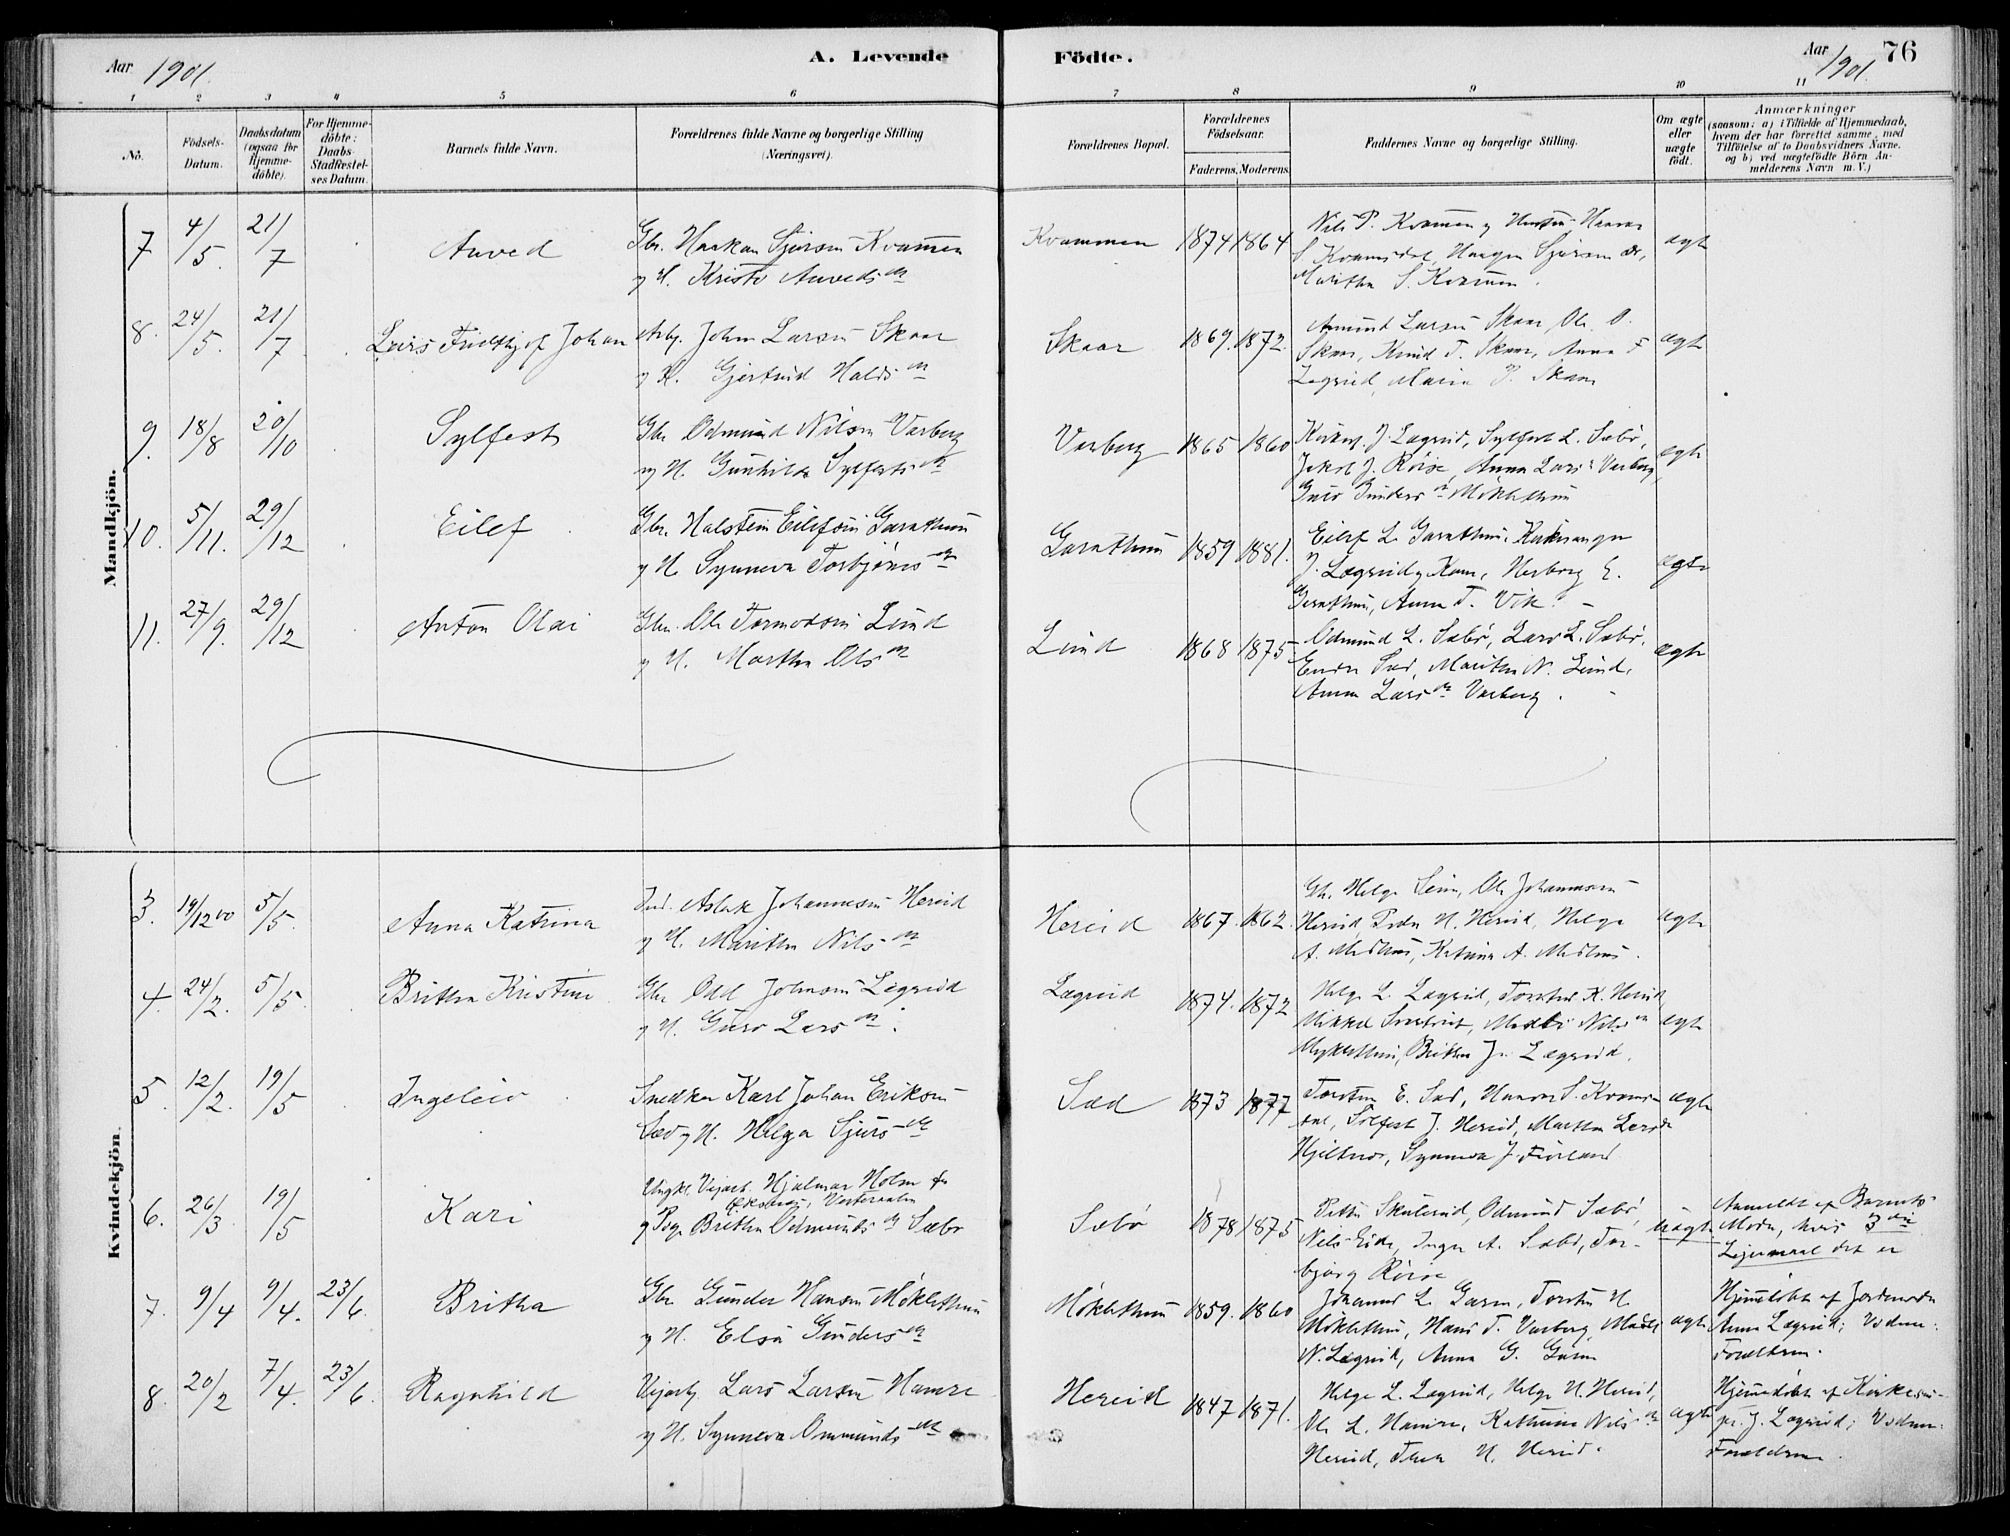 Aar 1901.
A. Levende Födte.
Aar 1901. 76
1 2 3 4 5 6 7 8 9 10 11
No.
Födsels-Datum.
Daabsdatum (ogsaa for Hjemme-döbte).
For Hjemme-döbte: Daabs-Stadfæstel-ses Datum.
Barnets fulde Navn.
Forældrenes fulde Navne og borgerlige Stilling (Næringsvei).
Forældrenes Bopæl.
Forældrenes Födselsaar.
Faderens. Moderens.
Faddernes Navne og borgerlige Stilling.
Om ægte eller uægte födt.
Anmærkninger
(saasom: a) i Tilfælde af Hjemmedaab,
hvem der har forrettet samme, med
Tilföielse af to Daabsvidners Navne.
og b) ved uægtefödte Börn An-
melderens Navn m. V.)
Mandkjön.
7 4/5. 21/7 Anved Gbr. Haakon Sjursen Kvammen
y H. Kristi Anveds dr
Kvammen 1874 1864
Nils P. Kvammen
Maritha S. Kvammen.
ægte
8. 24/5. 21/7 Lars Fridthjof Johan Arb. Johan Larsen Skaar
y H. Gjertrud Halds dr
Skaar 1869. 1872.
Amund Larsen Skaar Ole O.
Skaar, Knud T. Skaar, Anna F
Legreid, Maria P. Skaar
ægte
9. 18/8 20/10 Sylfest Gbr Odmund Nilsen Varberg
y H. Gunhilda Sylfests dr
Varberg 1865 1860
Kirkes. J. Lægreid, Sylfest L. Sæbø,
Jakob J. Røise, Anna Lars dr Varberg,
Guro Gunders dr Møklethun
ægte
10. 5/11. 29/12 Eilef Gbr. Halstein Eilefsen Garathun
y H. Synneva Torbjørns dr
Garathun 1859 1881.
Eilef L. Garathun, Kirkesanger
J. Lægreid y Kone, Herborg E.
Garathun, Anna T. Vik. -
ægte
11. 27/9. 29/12 Anton Olai Gbr. Ole Tormodsen Lund
y H. Martha Ols dr
Lund 1868 1875
Odmund L. Sæbø, Lars L. Sæbø,
Endre Sæd, Maritha N. Lund,
Anna Lars dr Varberg.
ægte
Kvindekjön.
3. 19/12 00 5/5. Anna Katrina Ind. Aslak Johannesen Hereid
y H. Maritha Nils dr
Hereid 1867. 1862.
Gb. Helge Seim, Ole Johannesen
Hereid, Peder H. Hereid, Helga
A. Medhus, Katrina A. Medhus.
ægte
4. 24/2. 5/5. Britha Kristine Gbr Odd Johnsen Legreid
y H. Guro Lars dr.
Lægreid 1874. 1872
Helge L. Lægreid, Torstein K. Hereid,
Mikkel, Madli Nils dr
Myklethun, Britha J. Lægreid.
ægte
5. 12/2. 19/5 Ingeleiv Snedker Karl Johan Eriksen
Sæd y H. Helga Sjurs dr
Sæd 1873 1877
Torstein E. Sæd, Haaver S. Kvams-
dal, Sylfest J. Hereid, Martha Lars dr
Hjeltnes, Synneva J. Fivland
ægte
6. 26/3 19/5 Kari Ungk. Veiarb. Hjalmar Holm fra
Eksnes, Vesteraalen
y Pige Britha Odmunds dr Sæbø
Sæbø 1878 1875
Petter Skulerud, Odmund Sæbø,
Nils Eide, Inger A. Sæbø, Tor-
bjørg Røise
uægte
Anmeldt af Barnets
Moder, hvis 3die
Leiermaal det er
7. 9/4 9/4. 23/6. Britha Gbr Gunder Hansen Møklethun
y H. Elsa Gunders dr
Møklethun 1859. 1860
Johannes L. Garen, Torstein H.
Møklethun, Hans T. Varberg, Madli
N. Lægreid, Anna G. Garen
ægte
Hjemdøbt af Jordmoder
Anna Lægreid; Vidner:
Forældrene.
8. 20/2 7/4. 23/6. Ragnhild Veiarb. Lars Larsen Hamre
y H. Synneva Ommunds dr
Hereid 1847 1871.
Helge L. Lægreid, Helge H. Hereid,
Ole L. Hamre, Kathrine Nils dr
Hereid, H. Hereid.
ægte
Hjemmedøbt af Kirkesan-
ger J. Lægreid; Vidner:
Forældrene.